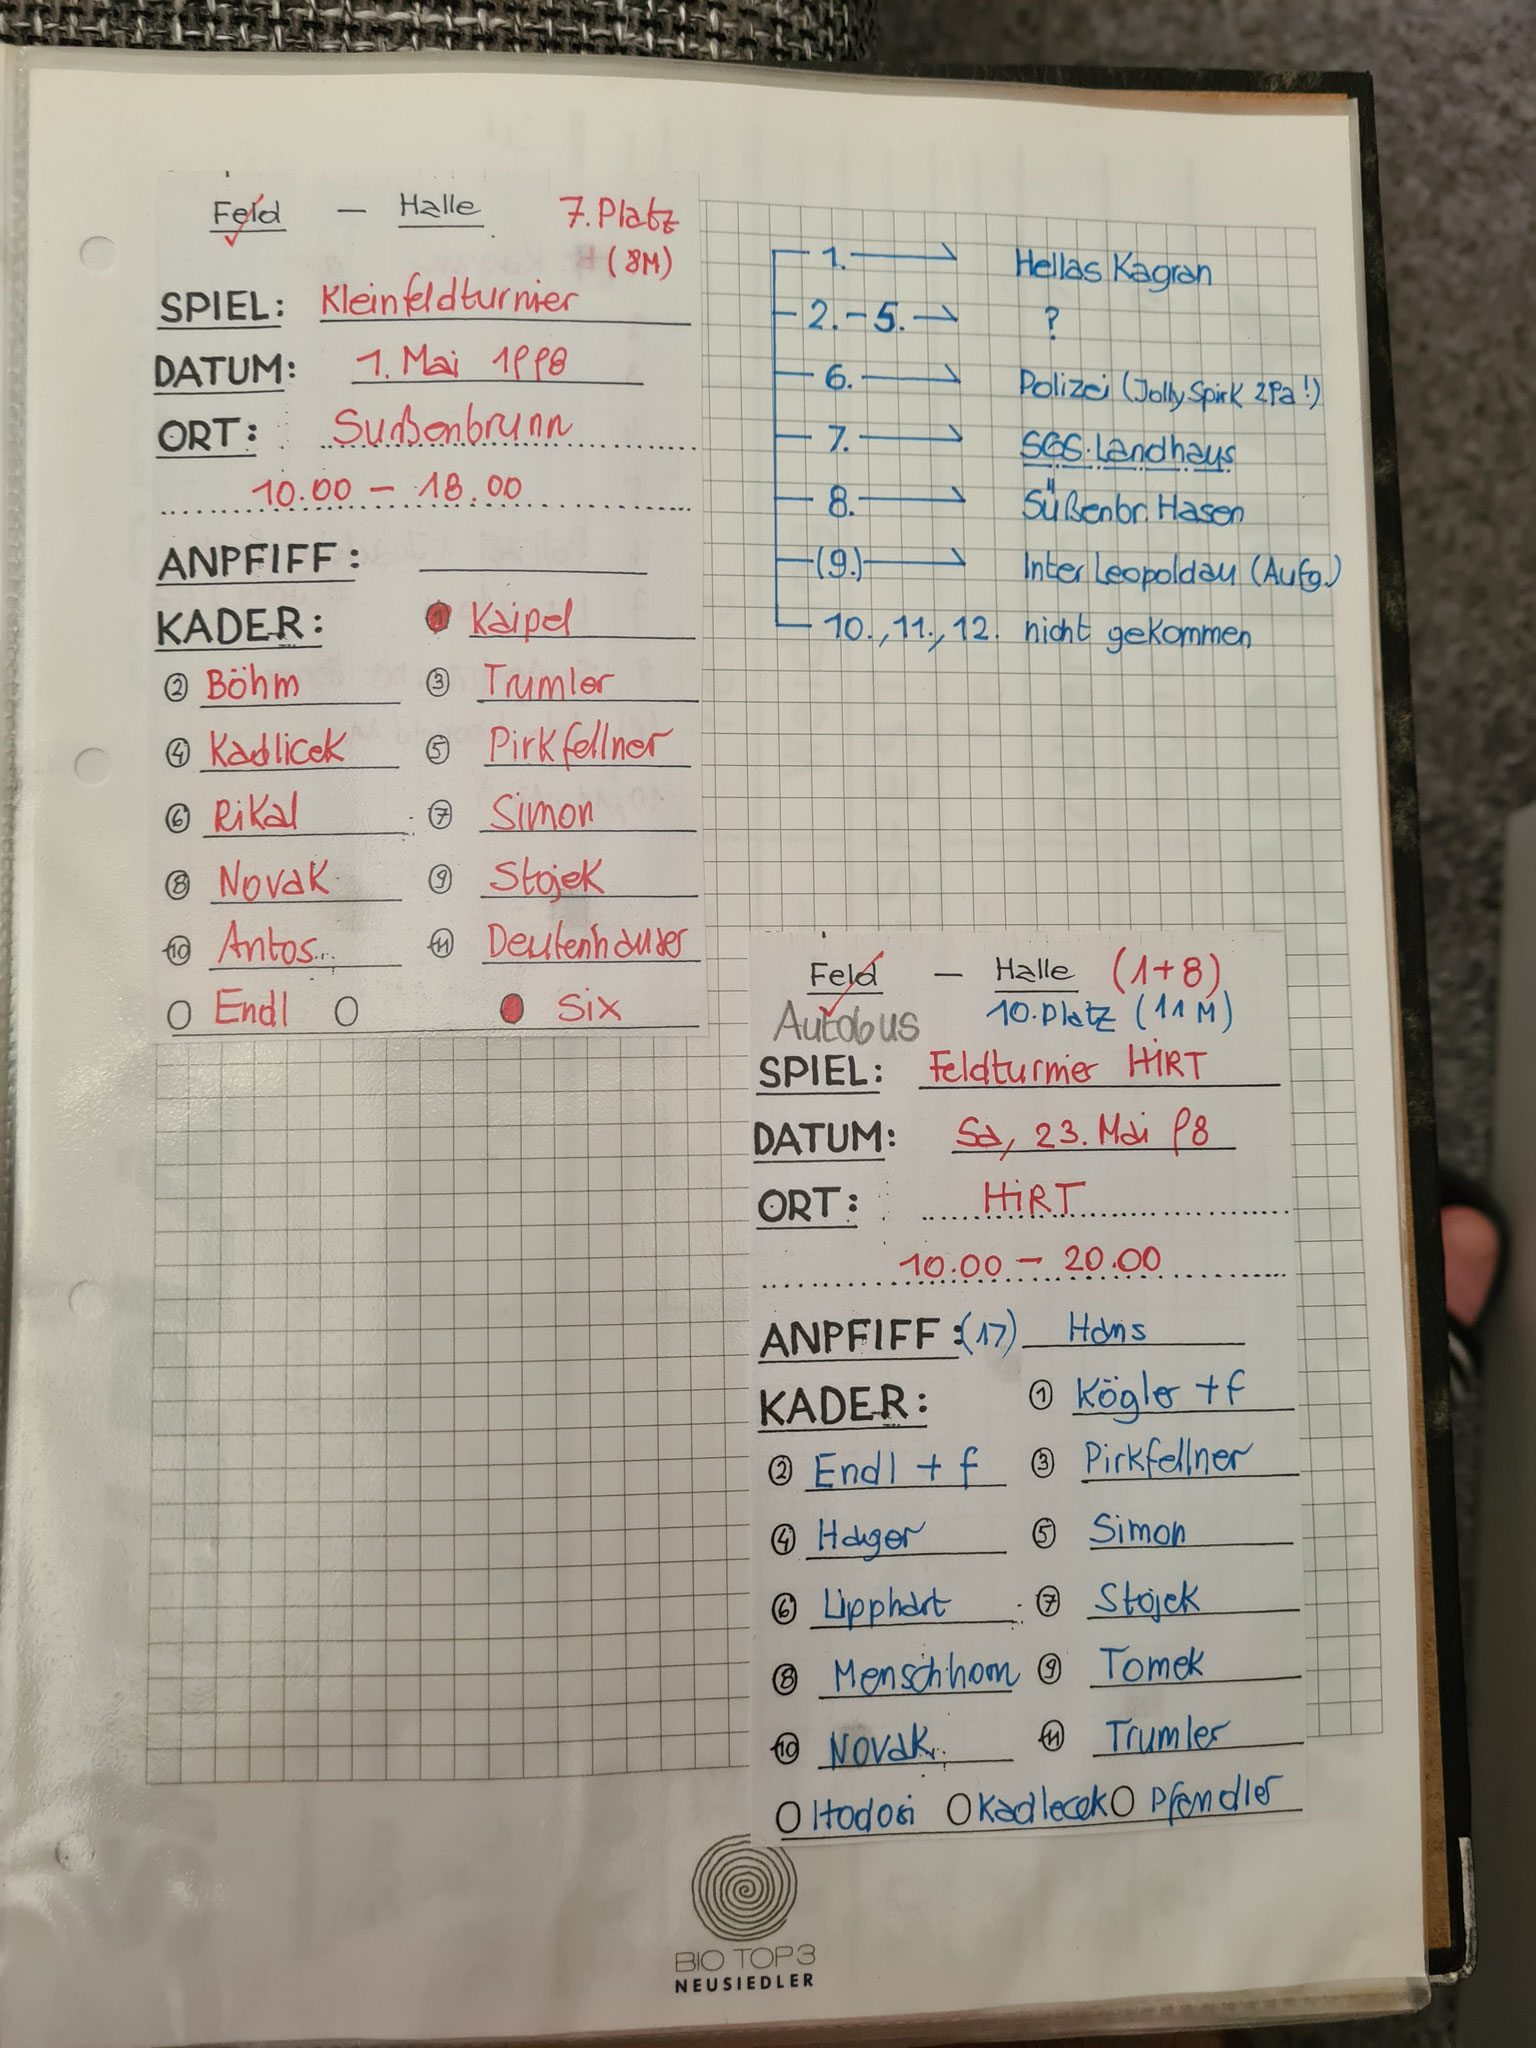 Feld – Halle 7. Platz
(8M)
SPIEL: Kleinfeldturnier
DATUM: 1. Mai 1998
ORT: Sußenbrunn
10.00 – 18.00
ANPFIFF:
KADER: 1 Kaipel
2 Böhm 3 Trumler
4 Kadlicek 5 Pirkfellner
6 Rikal 7 Simon
8 Novak 9 Stojek
10 Antos 11 Deutenhauser
Endl Six
1. → Hellas Kagran
2. – 5. → ?
6. → Polizei (Jolly Spirk 2Pa!)
7. → SGS. Landhaus
8. → Süßenbr. Hasen
(9.) → Inter Leopoldau (Aufg.)
10., 11., 12. nicht gekommen
Feld – Halle (1+8)
Autobus 10. Platz (11 M)
SPIEL: Feldturnier HIRT
DATUM: Sa, 23. Mai 98
ORT: HIRT
10.00 – 20.00
ANPFIFF: (17) Hans
KADER: 1 Kögler + f
2 Endl + f 3 Pirkfellner
4 Hager 5 Simon
6 Lipphart 7 Stojek
8 Menschhorn 9 Tomek
10 Novak 11 Trumler
Hodosi Kadlecek Pfandler
BIO TOP 3
NEUSIEDLER